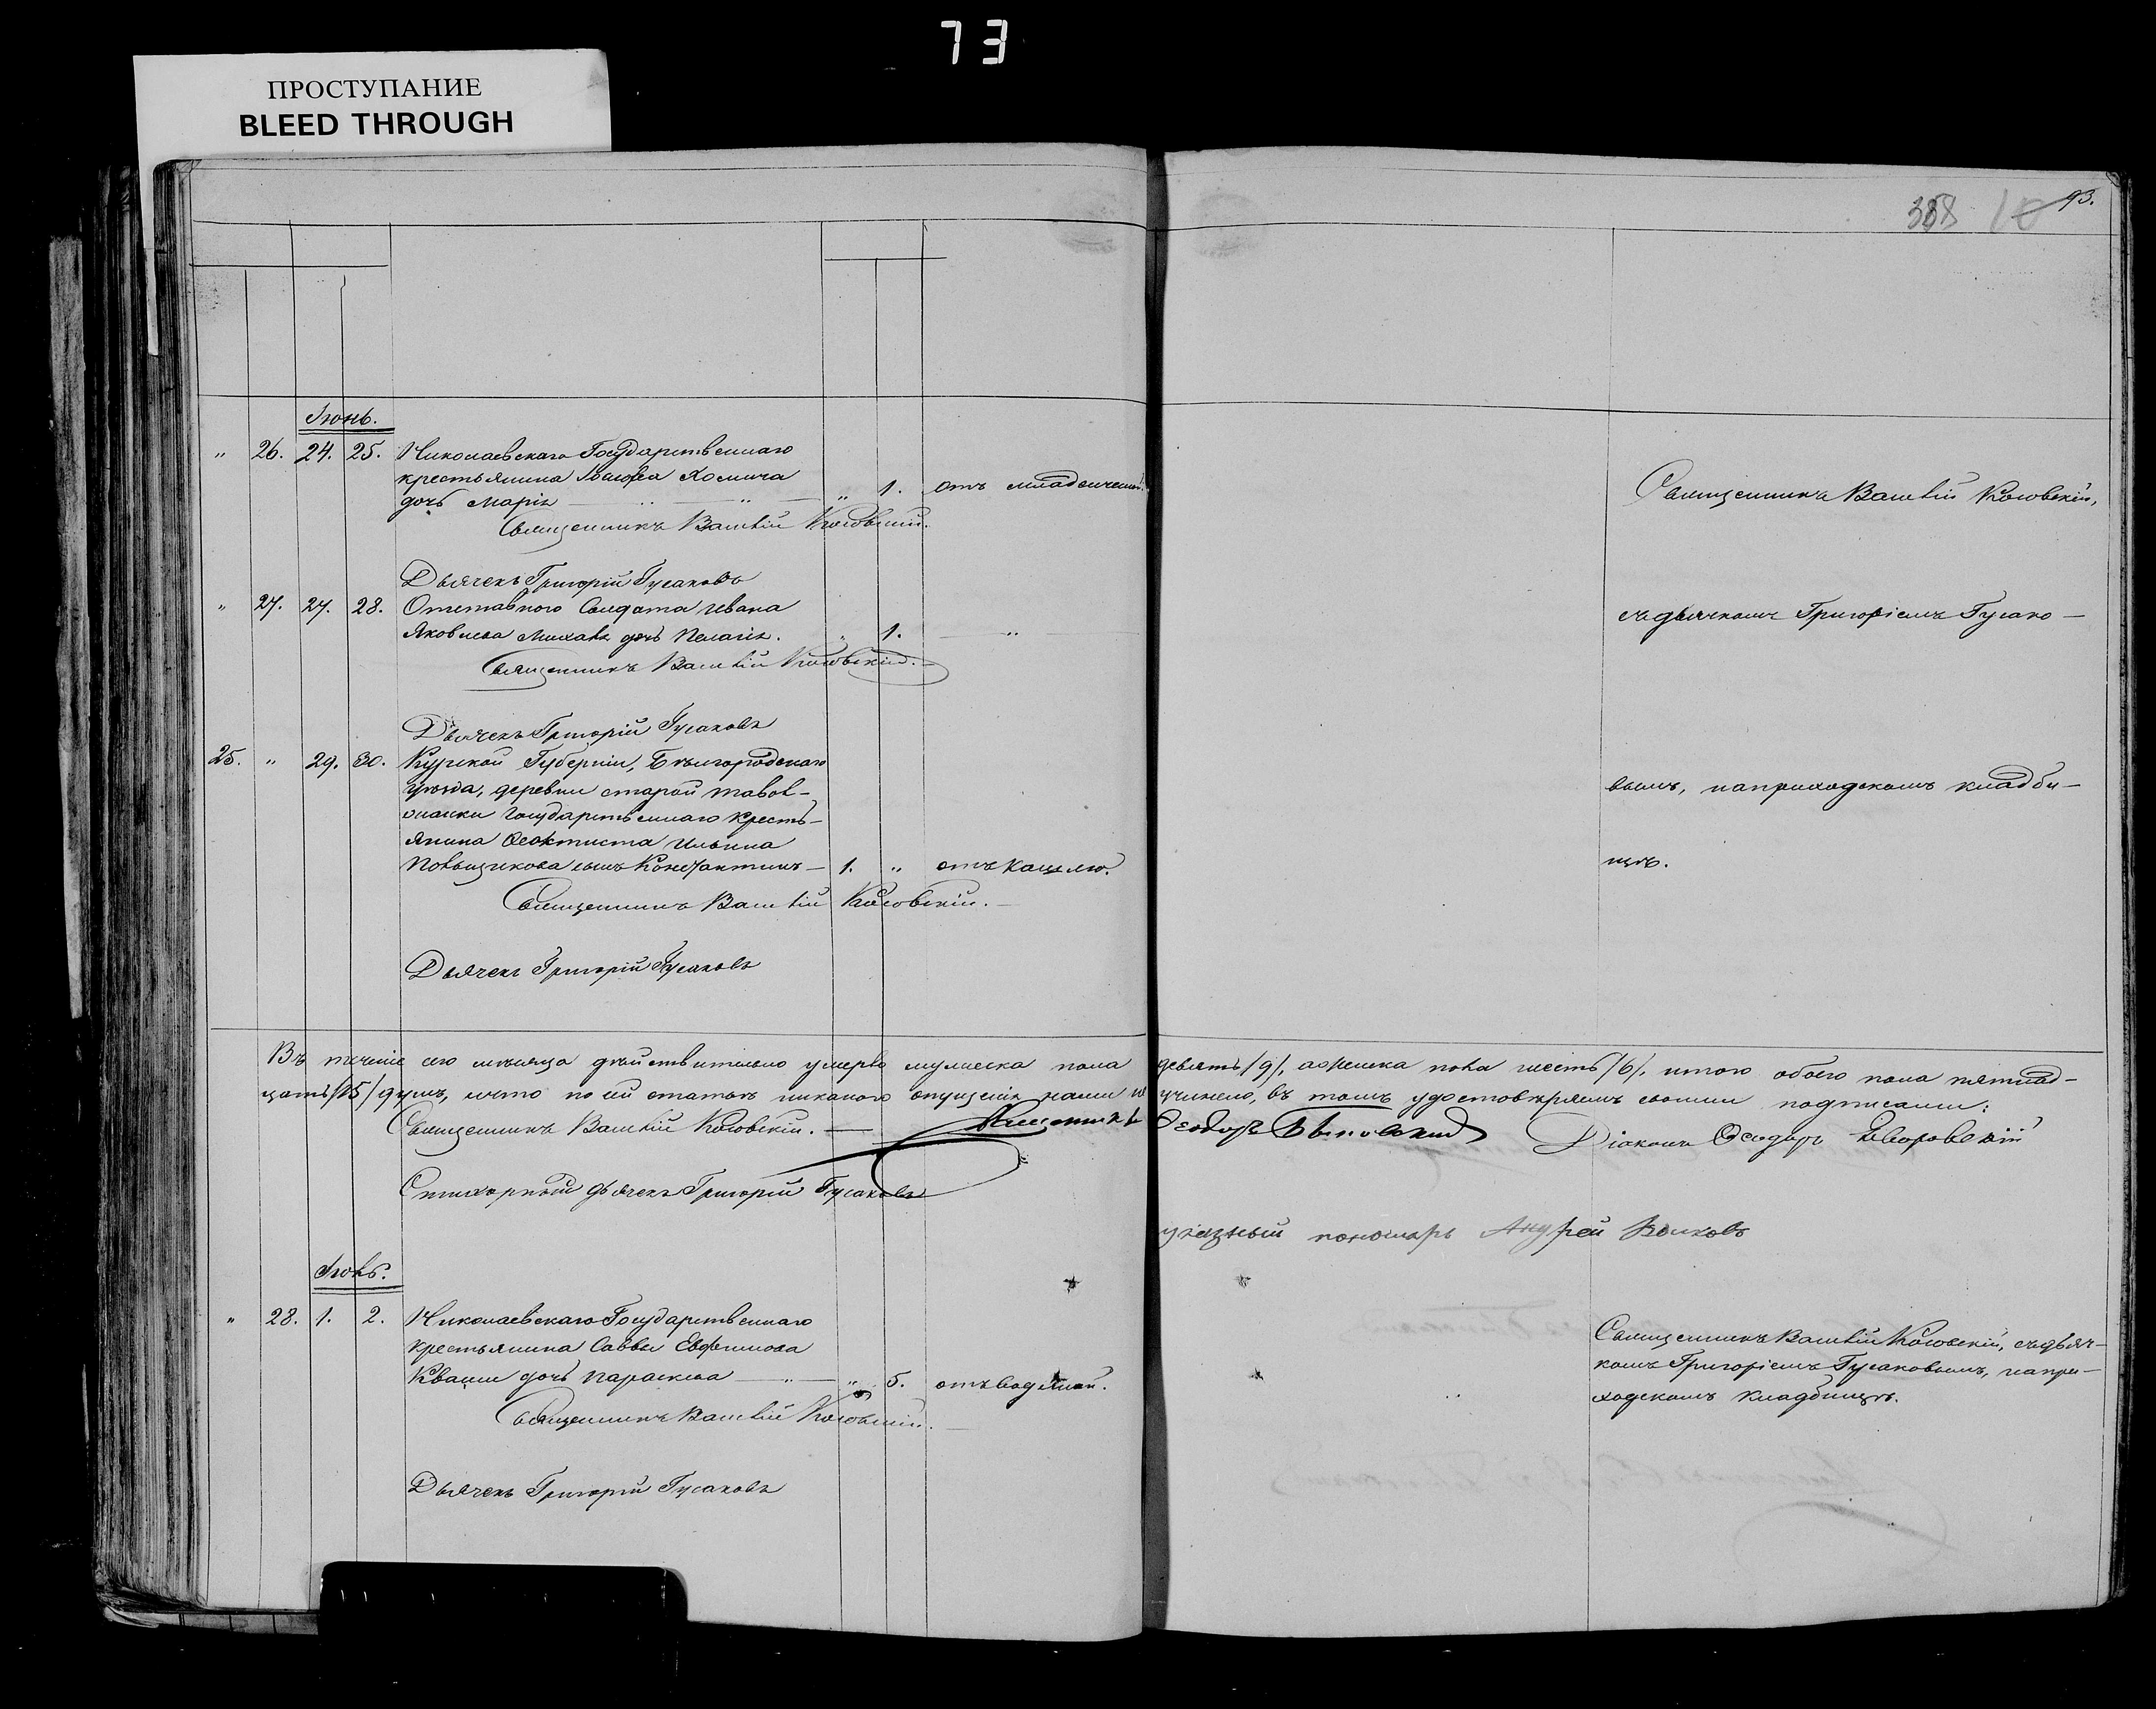 73
ПРОСТУПАНИЕ
BLEED THROUGH
358 10 93.
Іюнь.
" 26. 24. 25. Николаевскаго Государственнаго
крестьянина Хомича
дочь Марія " 1. отъ младенческой.
Священникъ Василій Косовскій.
Дьячекъ Григорій Гусаковъ
Священникъ Василій Косовскій,
" 27. 27. 28. Отставного Солдата Ивана
Яковлева дочь Пелагія. " 1. "
Священникъ Василій Косовскій.
Дьячекъ Григорій Гусаковъ
съ дьячкомъ Григоріемъ Гусако-
25. " 29. 30. Курской Губерніи, Бѣлгородскаго
уѣзда, деревни старой
Государственнаго кресть-
янина Феоктиста Ильина
сынъ Константинъ 1. " отъ кашлю.
Священникъ Василій Косовскій.
Дьячекъ Григорій Гусаковъ
вымъ, на приходскомъ кладби-
щѣ.
Въ теченіе сего мѣсяца дѣйствительно умерло мужеска пола девять /9/, а женска пола шесть /6/, итого обоего пола пятнад-
цать /15/ душъ, и что по сей статьѣ никакого опущенія нами не учинено, въ томъ удостовѣряемъ своими подписами:
Священникъ Василій Косовскій. Священникъ Феодоръ Діаконъ Феодоръ Яворовскій
Стихарный дьячекъ Григорій Гусаковъ
указный пономарь Андрей Волковъ
Іюль.
" 28. 1. 2. Николаевскаго Государственнаго
крестьянина Саввы Евфимова
Кваши дочь Параскева " 5. отъ водяной.
Священникъ Василій Косовскій.
Дьячекъ Григорій Гусаковъ
Священникъ Василій Косовскій, съ дьяч-
комъ Григоріемъ Гусаковымъ, на при-
ходскомъ кладбищѣ.